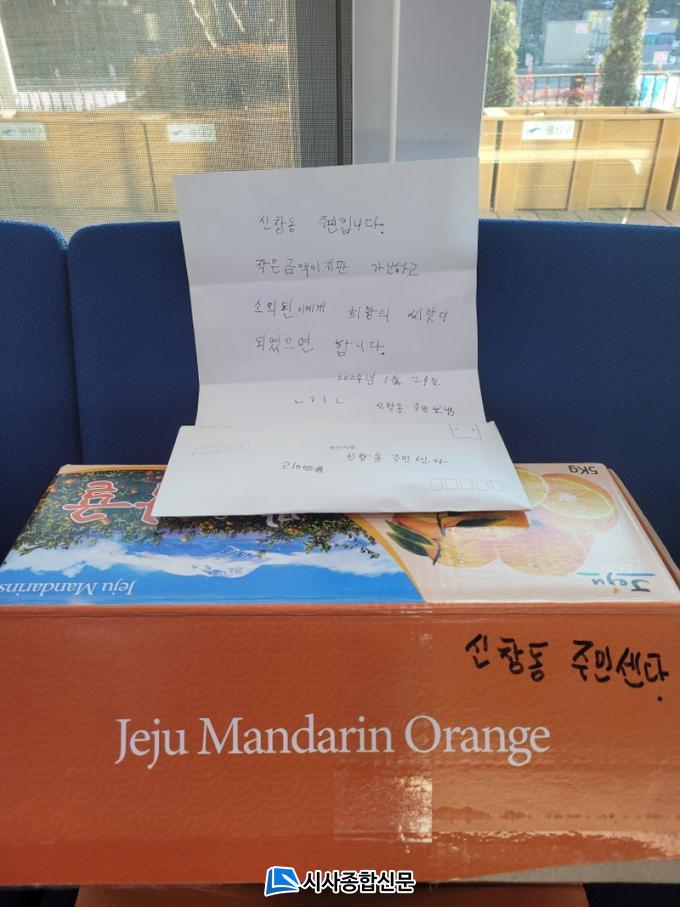 광산구
신창동 주민입니다.
작은금액이지만 가난하고
소외된이에게 희망의 씨앗이
되였으면 합니다.
2024년 1월 29일
신창동 주민보냄
신창동 주민센터
5Kg
Jeju
Jeju Mandarins
신창동 주민센타.
Jeju Mandarin Orange
시사종합신문